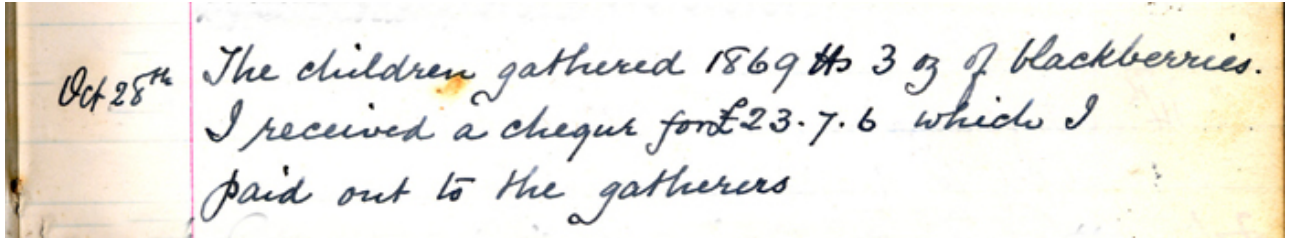 Oct 28th
The children gathered 1869 lbs 3 oz of blackberries.
I received a cheque for £23.7.6 which I
paid out to the gatherers